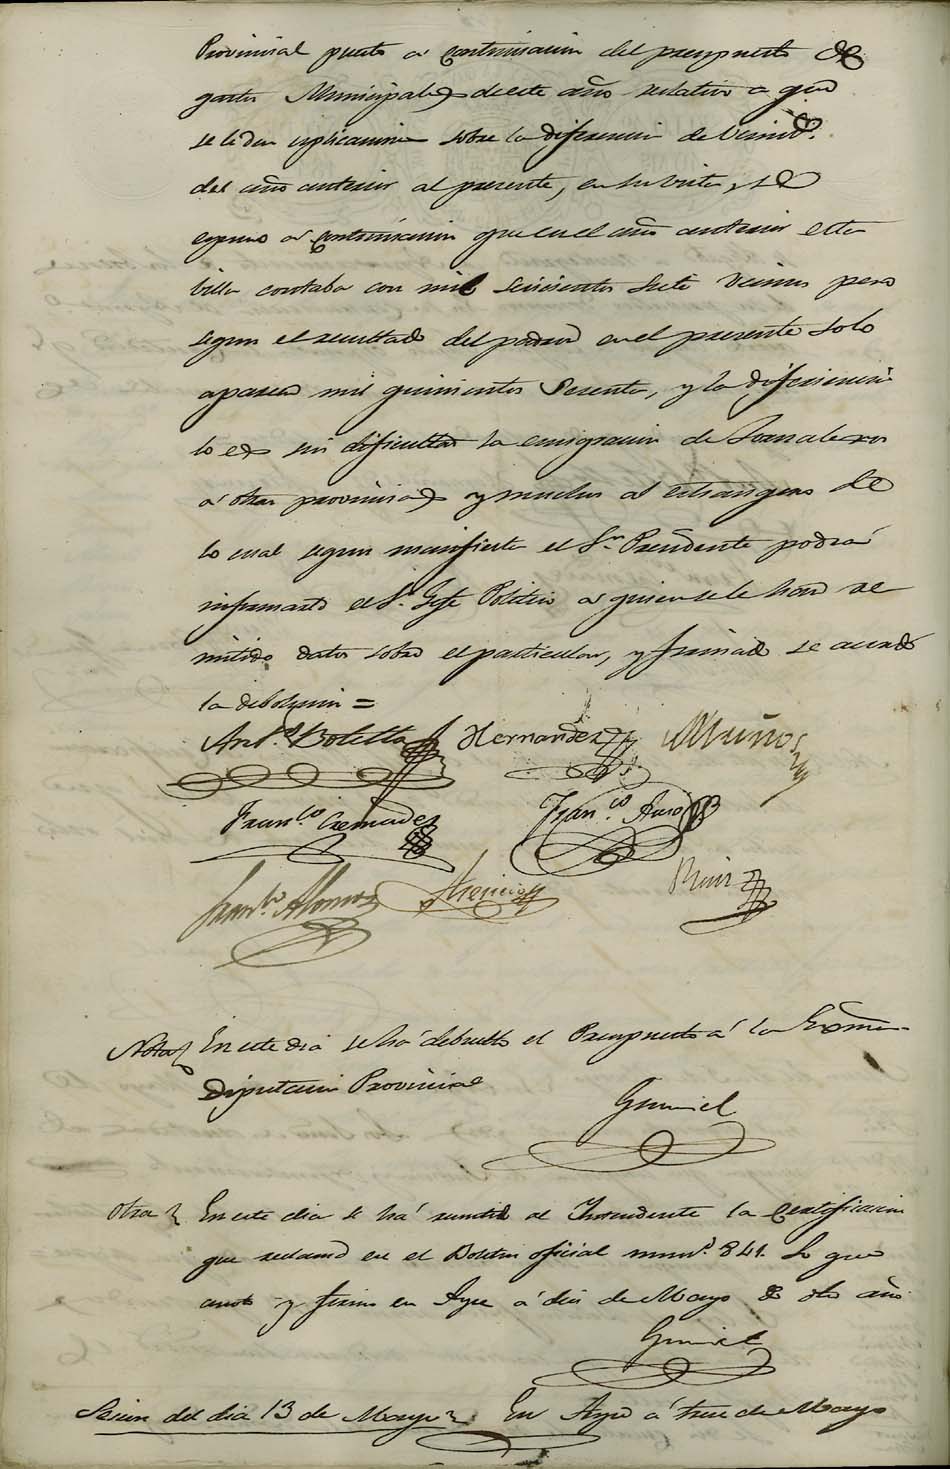 Provincial puesto a continuacion del presupuesto de
gastos Municipales de este año relativo a que
se le den esplicaciones sobre la diferencia de vecinos
del año anterior al presente, en su vista, se
espuso a continuacion que en el año anterior esta
billa contaba con mil seiscientos siete vecinos pero
segun el resultado del padron en el presente solo
aparecen mil quinientos sesenta, y la diferiencia
lo es sin dificultad la emigracion de Jornaleros
a otras provincias y muchos al estrangero de
lo cual segun manifiesta el Sr. Presidente podrá
informarse el Sr. Gefe Politico a quien se le han re
mitido datos sobre el particular, y firmado se acuerda
la debolucion =
Ant.º Botella Hernandez Muños
Fran.co Cremades Fran.co Auso
Fran.co Alonso Asencio
Nota En este dia se há debuelto el Presupuesto a la Exôma
Diputacion Provincial
Gumiel
Otra En este dia se há remitido al Intendente la Certificacion
que reclama en el Boletin oficial num.º 841. Lo que
anoto y firmo en Aspe a dies de Mayo de dho año.
Gumiel
Secion del dia 13 de Mayo En Aspe á trece de Mayo